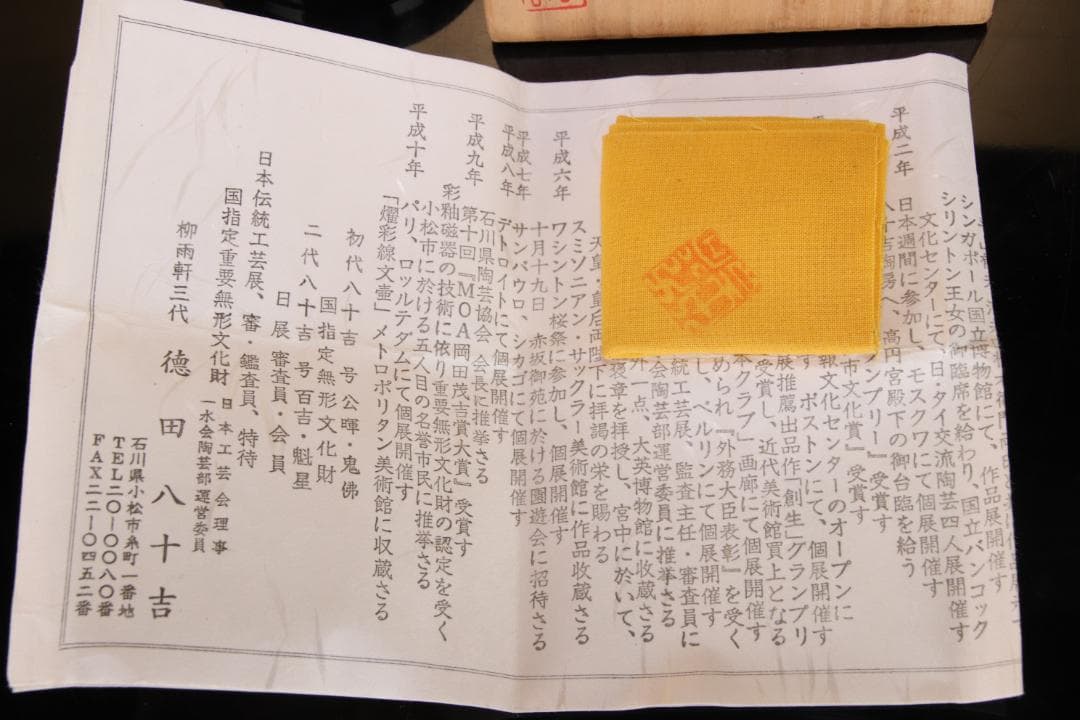 シンガポール国立博物館にて、作品展開催す
シリントン王女の御臨席を給わり、国立バンコック
文化センターにて、日・タイ交流陶芸四人展開催す
日本週間に参加し、モスクワにて個展開催す
平成二年
八十吉陶房へ、高円宮殿下の御台臨を給う
ンプリー』受賞す
市文化賞』受賞す
報文化センターのオープンに
す ボストンにて、個展開催す
展推薦出品作『創生』グランプリ
受賞し、近代美術館買上となる
本クラブ』画廊にて個展開催す
められ『外務大臣表彰』を受く
し、ベルリンにて個展開催す
統工芸展、監査主任・審査員に
会陶芸部運営委員に推挙さる
外一点、大英博物館に収蔵さる
褒章を拝授し、宮中に於いて、
天皇・皇后両陛下に拝謁の栄を賜わる
スミソニアン・サックラー美術館に作品収蔵さる
平成六年
ワシントン桜祭に参加し、個展開催す
十月十九日 赤坂御苑に於ける園遊会に招待さる
平成七年
サンパウロ、シカゴにて個展開催す
平成八年
デトロイトにて個展開催す
石川県陶芸協会 会長に推挙さる
平成九年
第十回『MOA岡田茂吉賞大賞』受賞す
彩釉磁器の技術に依り重要無形文化財の認定を受く
小松市に於ける五人目の名誉市民に推挙さる
平成十年
パリ、ロッテルダムにて個展開催す
「燿彩線文壷」メトロポリタン美術館に収蔵さる
初代八十吉 号公暉・鬼佛
国指定無形文化財
二代八十吉 号百吉・魁星
日展 審査員・会員
日本伝統工芸展、審・鑑査員、特待
国指定重要無形文化財 日本工芸会理事
一水会陶芸部運営委員
柳雨軒三代 德田八十吉
石川県小松市糸町一番地
TEL二〇―〇〇八〇番
FAX二二―〇四五二番